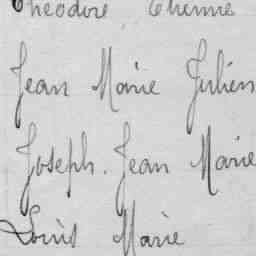 Théodore, Etienne
Jean Marie Julien
Joseph. Jean Marie
Louis Marie